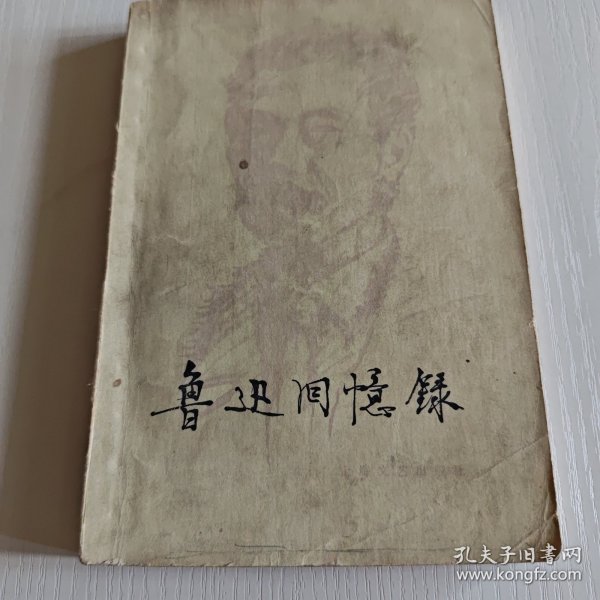 鲁迅回憶録
孔夫子旧書网
www.kongfz.com